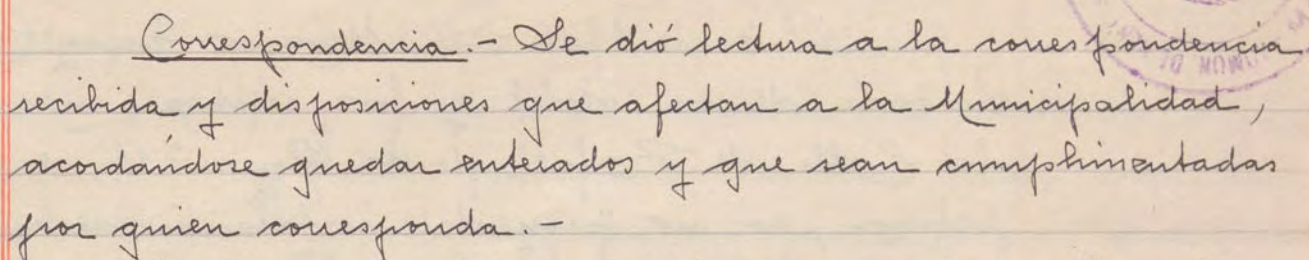 Correspondencia.- Se dió lectura a la correspondencia
recibida y disposiciones que afectan a la Municipalidad,
acordándose quedar enterados y que sean cumplimentadas
por quien corresponda.-